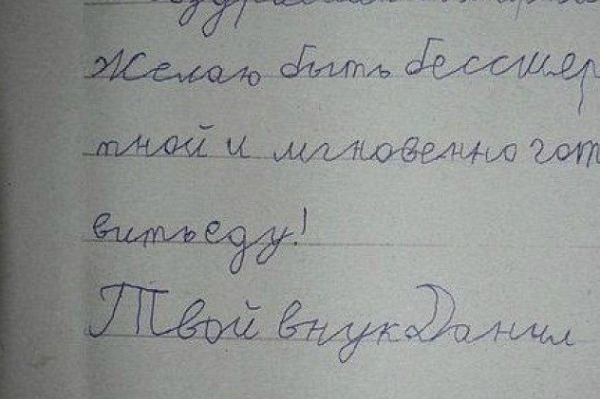 Желаю быть бессмер
тной и мгновенно гот
вить еду!
Твой внук Данил